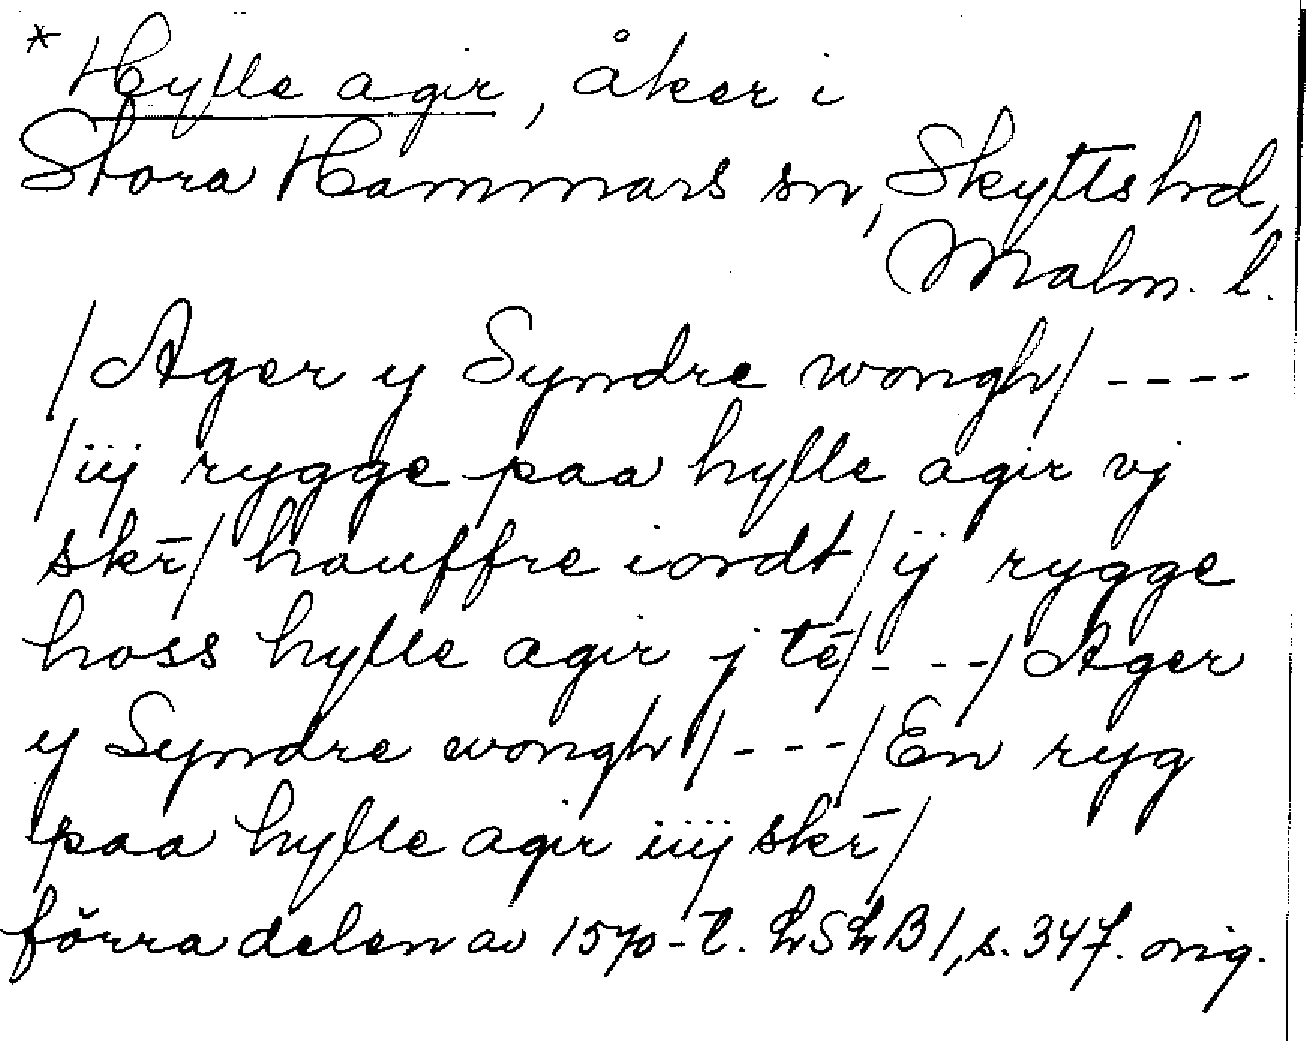 * Hylle agir, åker i
Stora Hammars sn, Skytts hd,
Malm. l.
/Ager y Syndre wongh/ ----
/iij rygge paa hylle agir vj
skr̄/ hauffre iordt/ij rygge
hoss hylle agir j tē/- - -/Ager
y Syndre wongh/ /---/En ryg
paa hylle agir iiij skr̄/
förra delen av 1570-t. LSLB 1, s. 347. orig.